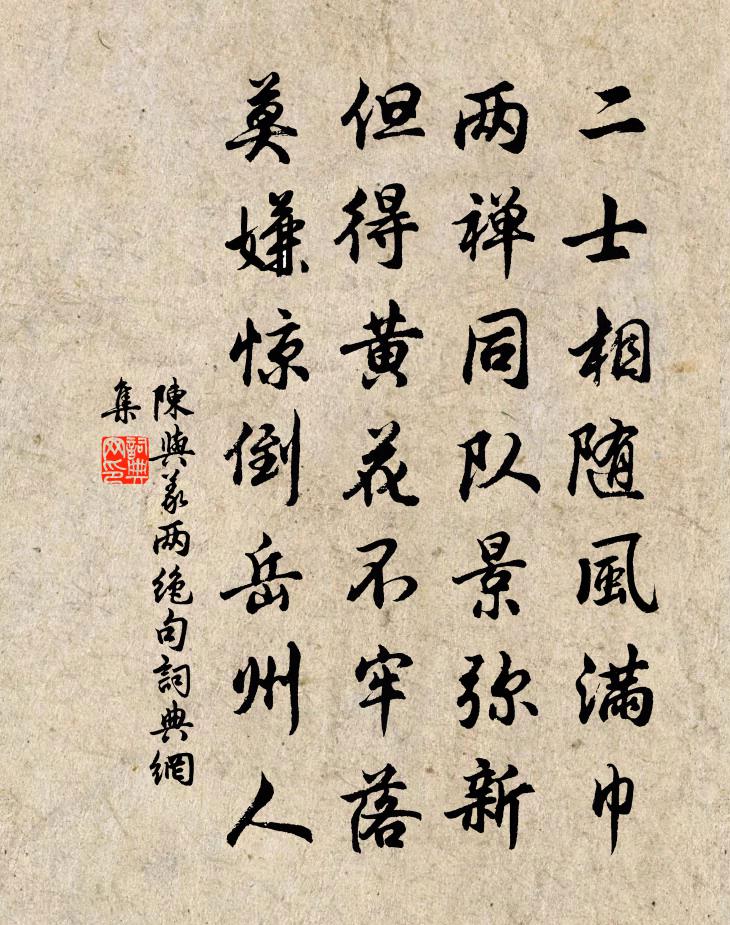 二士相随風滿巾
两禅同队景弥新
但得黄花不牢落
莫嫌惊倒岳州人
陳與義两绝句詞典網
集
詞典网印